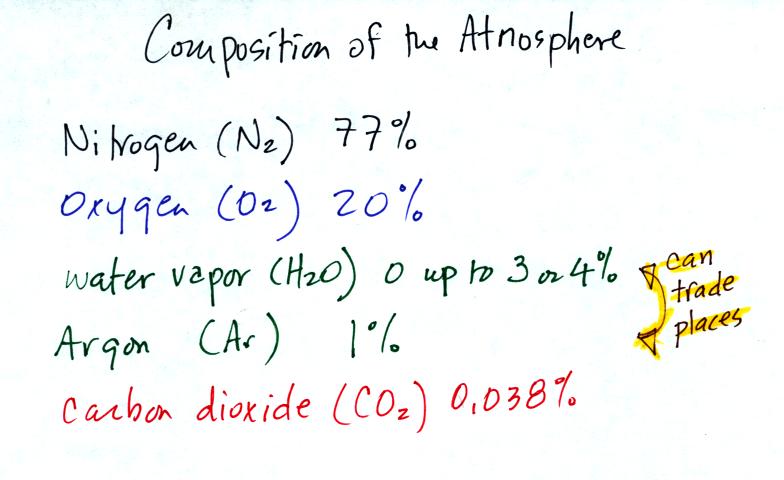 Composition of the Atnosphere
Nitrogen (N2) 77%
Oxygen (O2) 20%
water vapor (H2O) 0 up to 3 or 4%
can
trade
places
Argon (Ar) 1%
Carbon dioxide (CO2) 0.038%